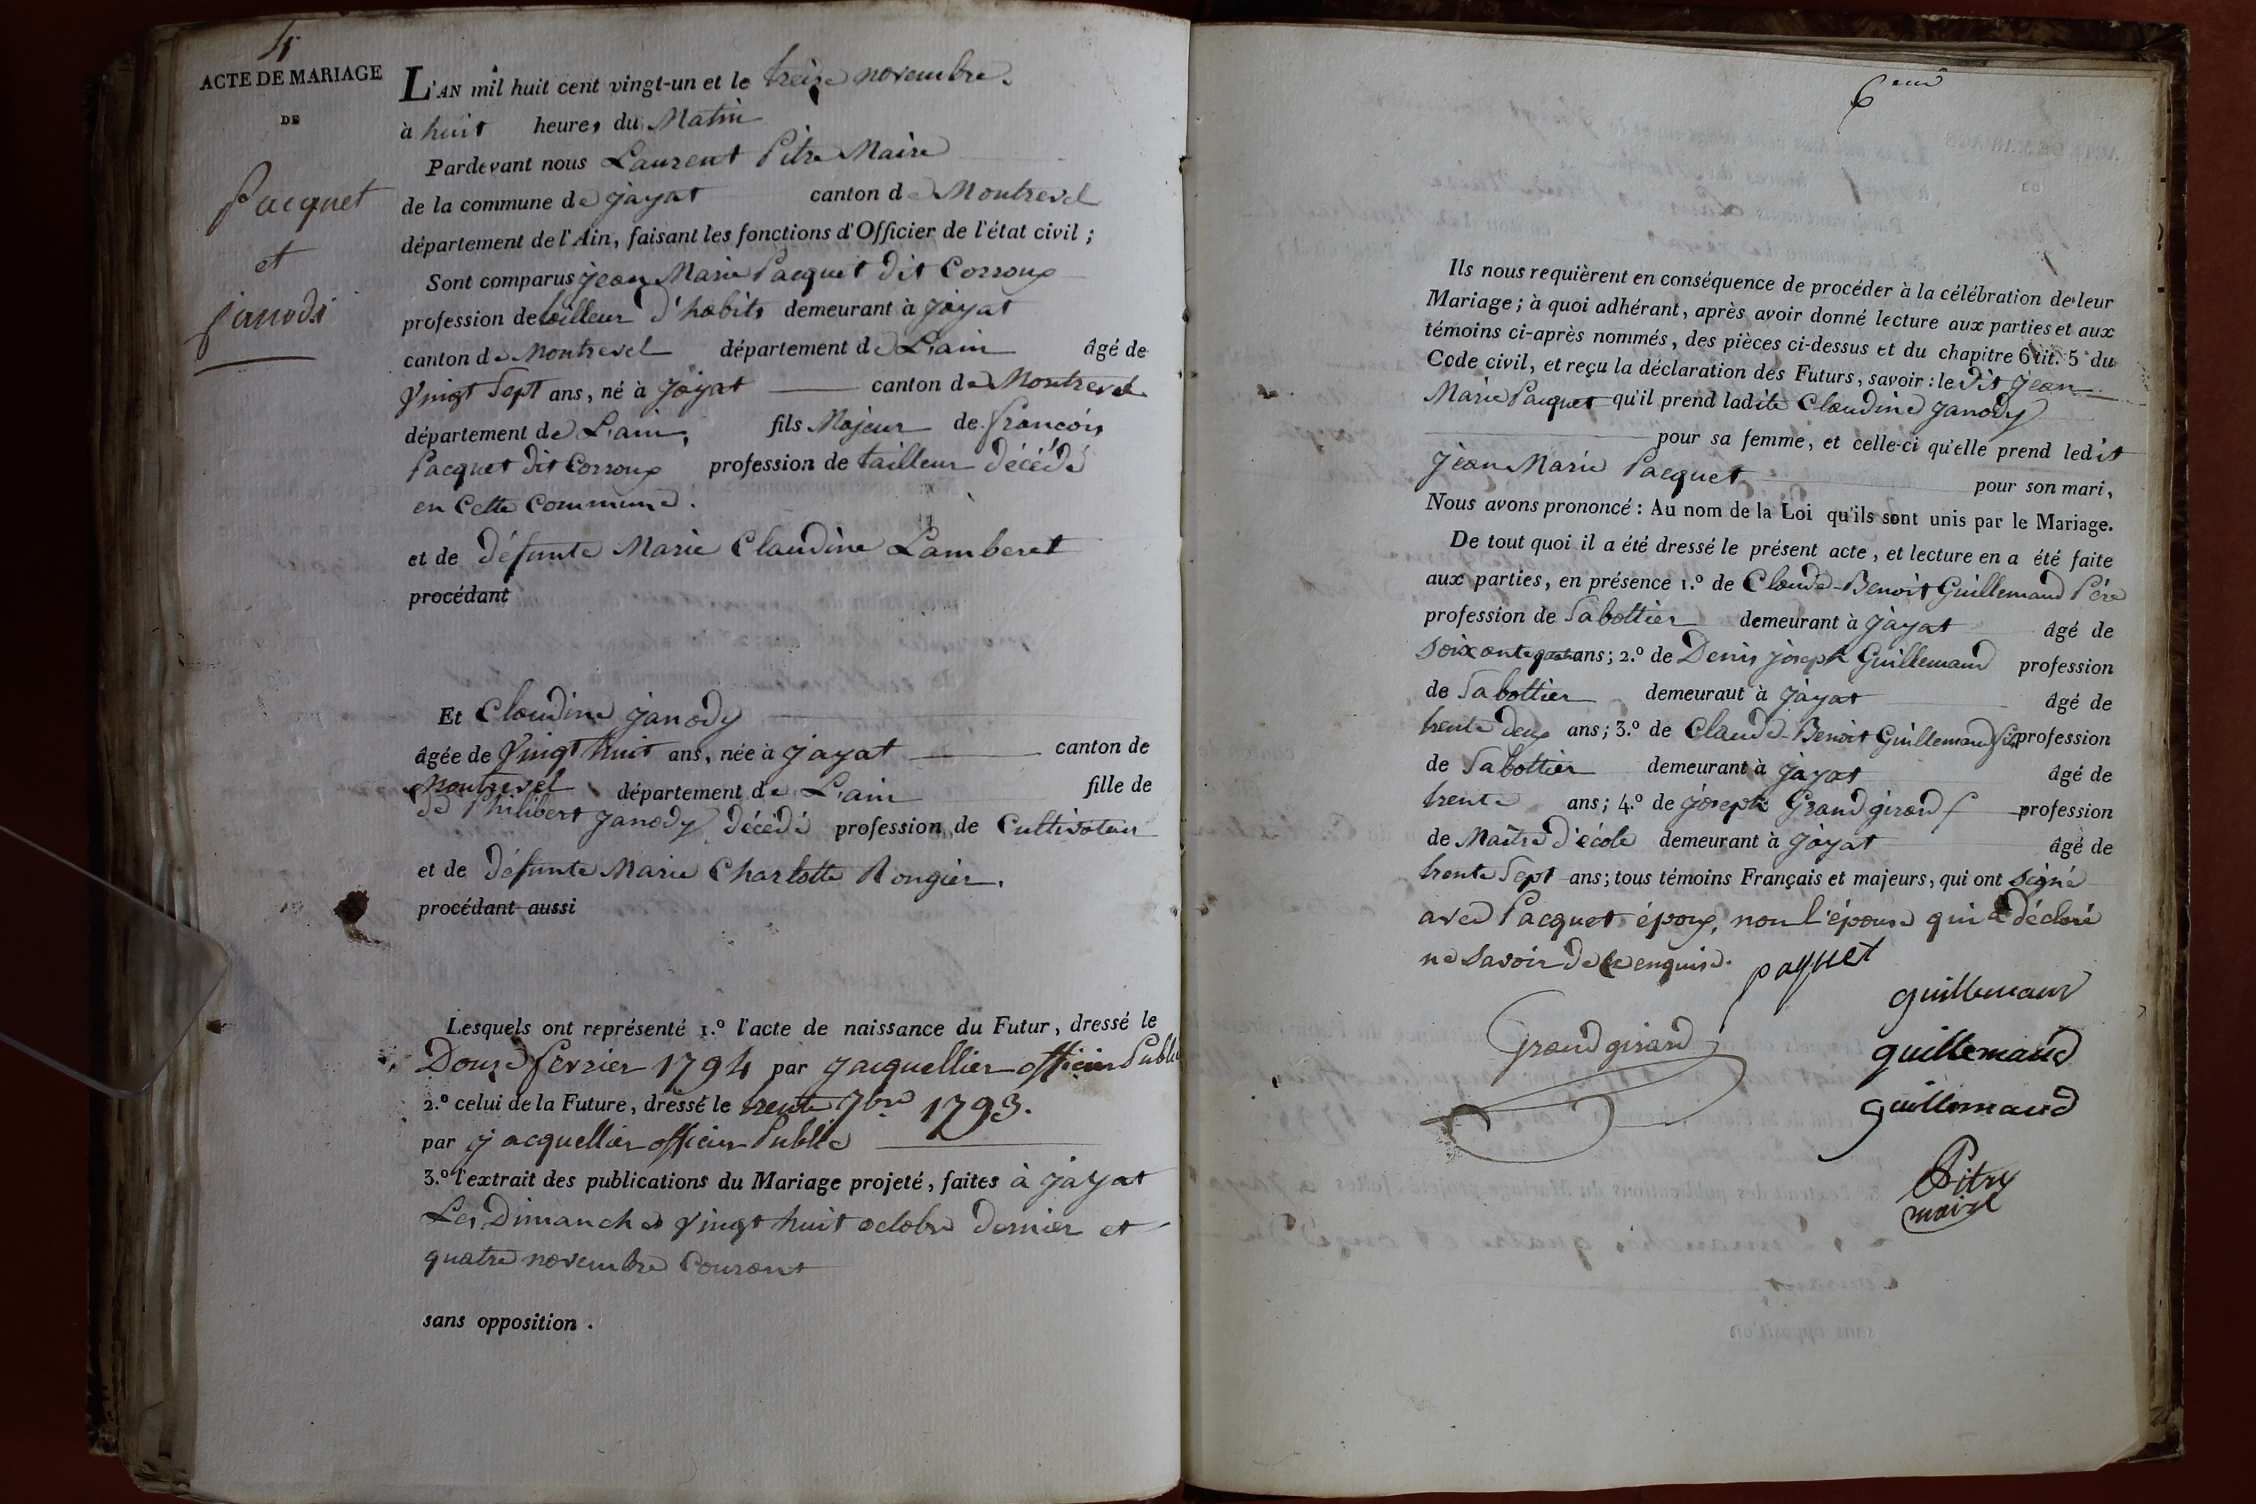 4
ACTE DE MARIAGE
DE
Pacquet
et
janodi
L'AN mil huit cent vingt-un et le treize novembre.
à huit heures du Matin
Pardevant nous Laurent Pitre Maire
de la commune de jayat canton de Montrevel
département de l'Ain, faisant les fonctions d'Officier de l'état civil ;
Sont comparus jean Marie Pacquet dit Corroux
profession de tailleur d'habits demeurant à jayat
canton de Montrevel département de L'ain âgé de
vingt Sept ans, né à jayat canton de Montrevel
département de L'ain, fils Majeur de francois
Pacquet dit Corroux profession de tailleur décédé
en cette commune.
et de défunte Marie Claudine Lamberet
procédant
Et Claudine janody
âgée de vingt huit ans, née à jayat canton de
Montrevel département de L'ain fille de
de Philibert janody décédé profession de Cultivateur
et de défunte Marie Charlotte Rongier.
procédant aussi
Lesquels ont représenté 1.º l'acte de naissance du Futur, dressé le
Douze fevrier 1794 par jacquellier officier Public
2.º celui de la Future, dressé le trente 7bre 1793.
par jacquellier officier Public
3.º l'extrait des publications du Mariage projeté, faites à jayat
Les Dimanches vingt huit octobre dernier et
quatre novembre Courant
sans opposition .
6eme
Ils nous requièrent en conséquence de procéder à la célébration de leur
Mariage ; à quoi adhérant, après avoir donné lecture aux parties et aux
témoins ci-après nommés, des pièces ci-dessus et du chapitre 6 tit. 5 du
Code civil, et reçu la déclaration des Futurs, savoir : le dit jean
Marie Pacquet qu'il prend ladite Claudine janody
pour sa femme, et celle-ci qu'elle prend ledit
jean Marie Pacquet pour son mari,
Nous avons prononcé : Au nom de la Loi qu'ils sont unis par le Mariage.
De tout quoi il a été dressé le présent acte, et lecture en a été faite
aux parties, en présence 1.º de Claude-Benoit Guillemaud Pére
profession de Sabottier demeurant à jayat âgé de
soixante quatre ans ; 2.º de Denis joseph Guillemaud profession
de Sabottier demeuraut à jayat âgé de
trente deux ans ; 3.º de Claude-Benoit Guillemaud fils profession
de Sabottier demeurant à jayat âgé de
trente ans ; 4.º de joseph Grandgirard profession
de Maître d'école demeurant à jayat âgé de
trente Sept ans ; tous témoins Français et majeurs, qui ont signé
avec Pacquet époux, non l'épouse qui a déclaré
ne savoir de ce enquise.
paquet
guillemaud
Grandgirard
guillemaud
guillemaud
Pitre
maire